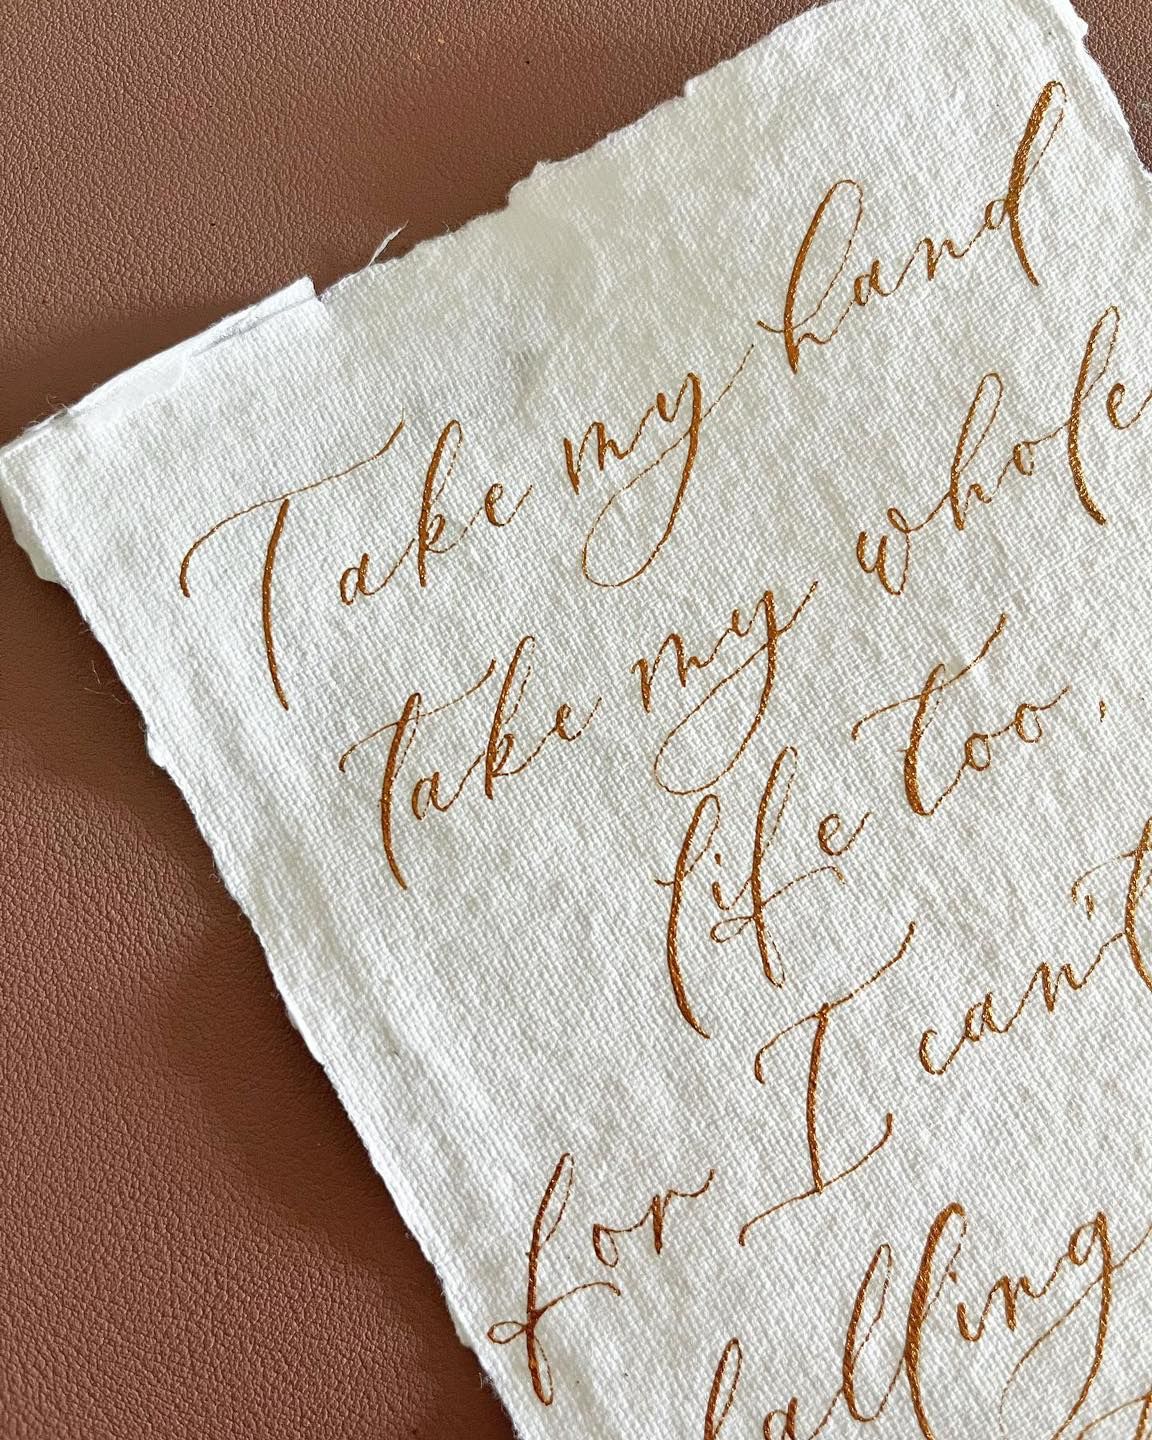 Take my hand
take my whole
life too,
for I can't
falling